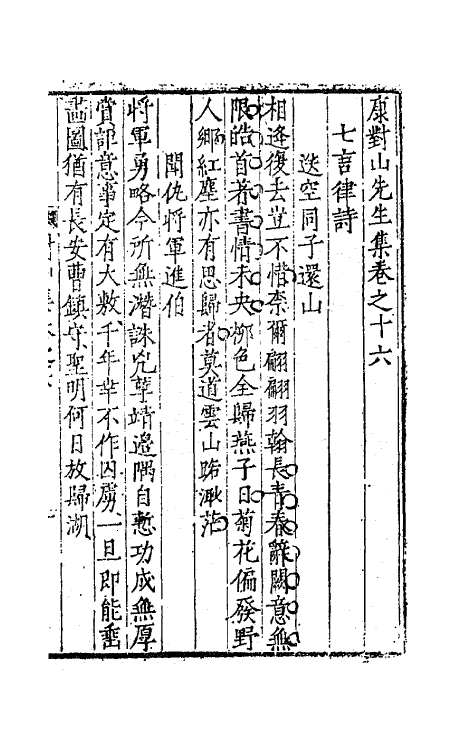 康對山先生集卷之十六
七言律詩
送空同子還山
相逢復去豈不惜柰爾翩翩羽翰長青春辭闕意無
限皓首著書情未央柳色全歸燕子日菊花偏發野
人鄉紅塵亦有思歸者莫道雲山路渺茫
聞仇將軍進伯
將軍勇略今所無潛誅兇孽靖邊隅自慙功成無厚
賞詎意事定有大敷千年幸不作囚虜一旦即能畫
讌圖猶有長安曹鎮守聖明何日放歸湖